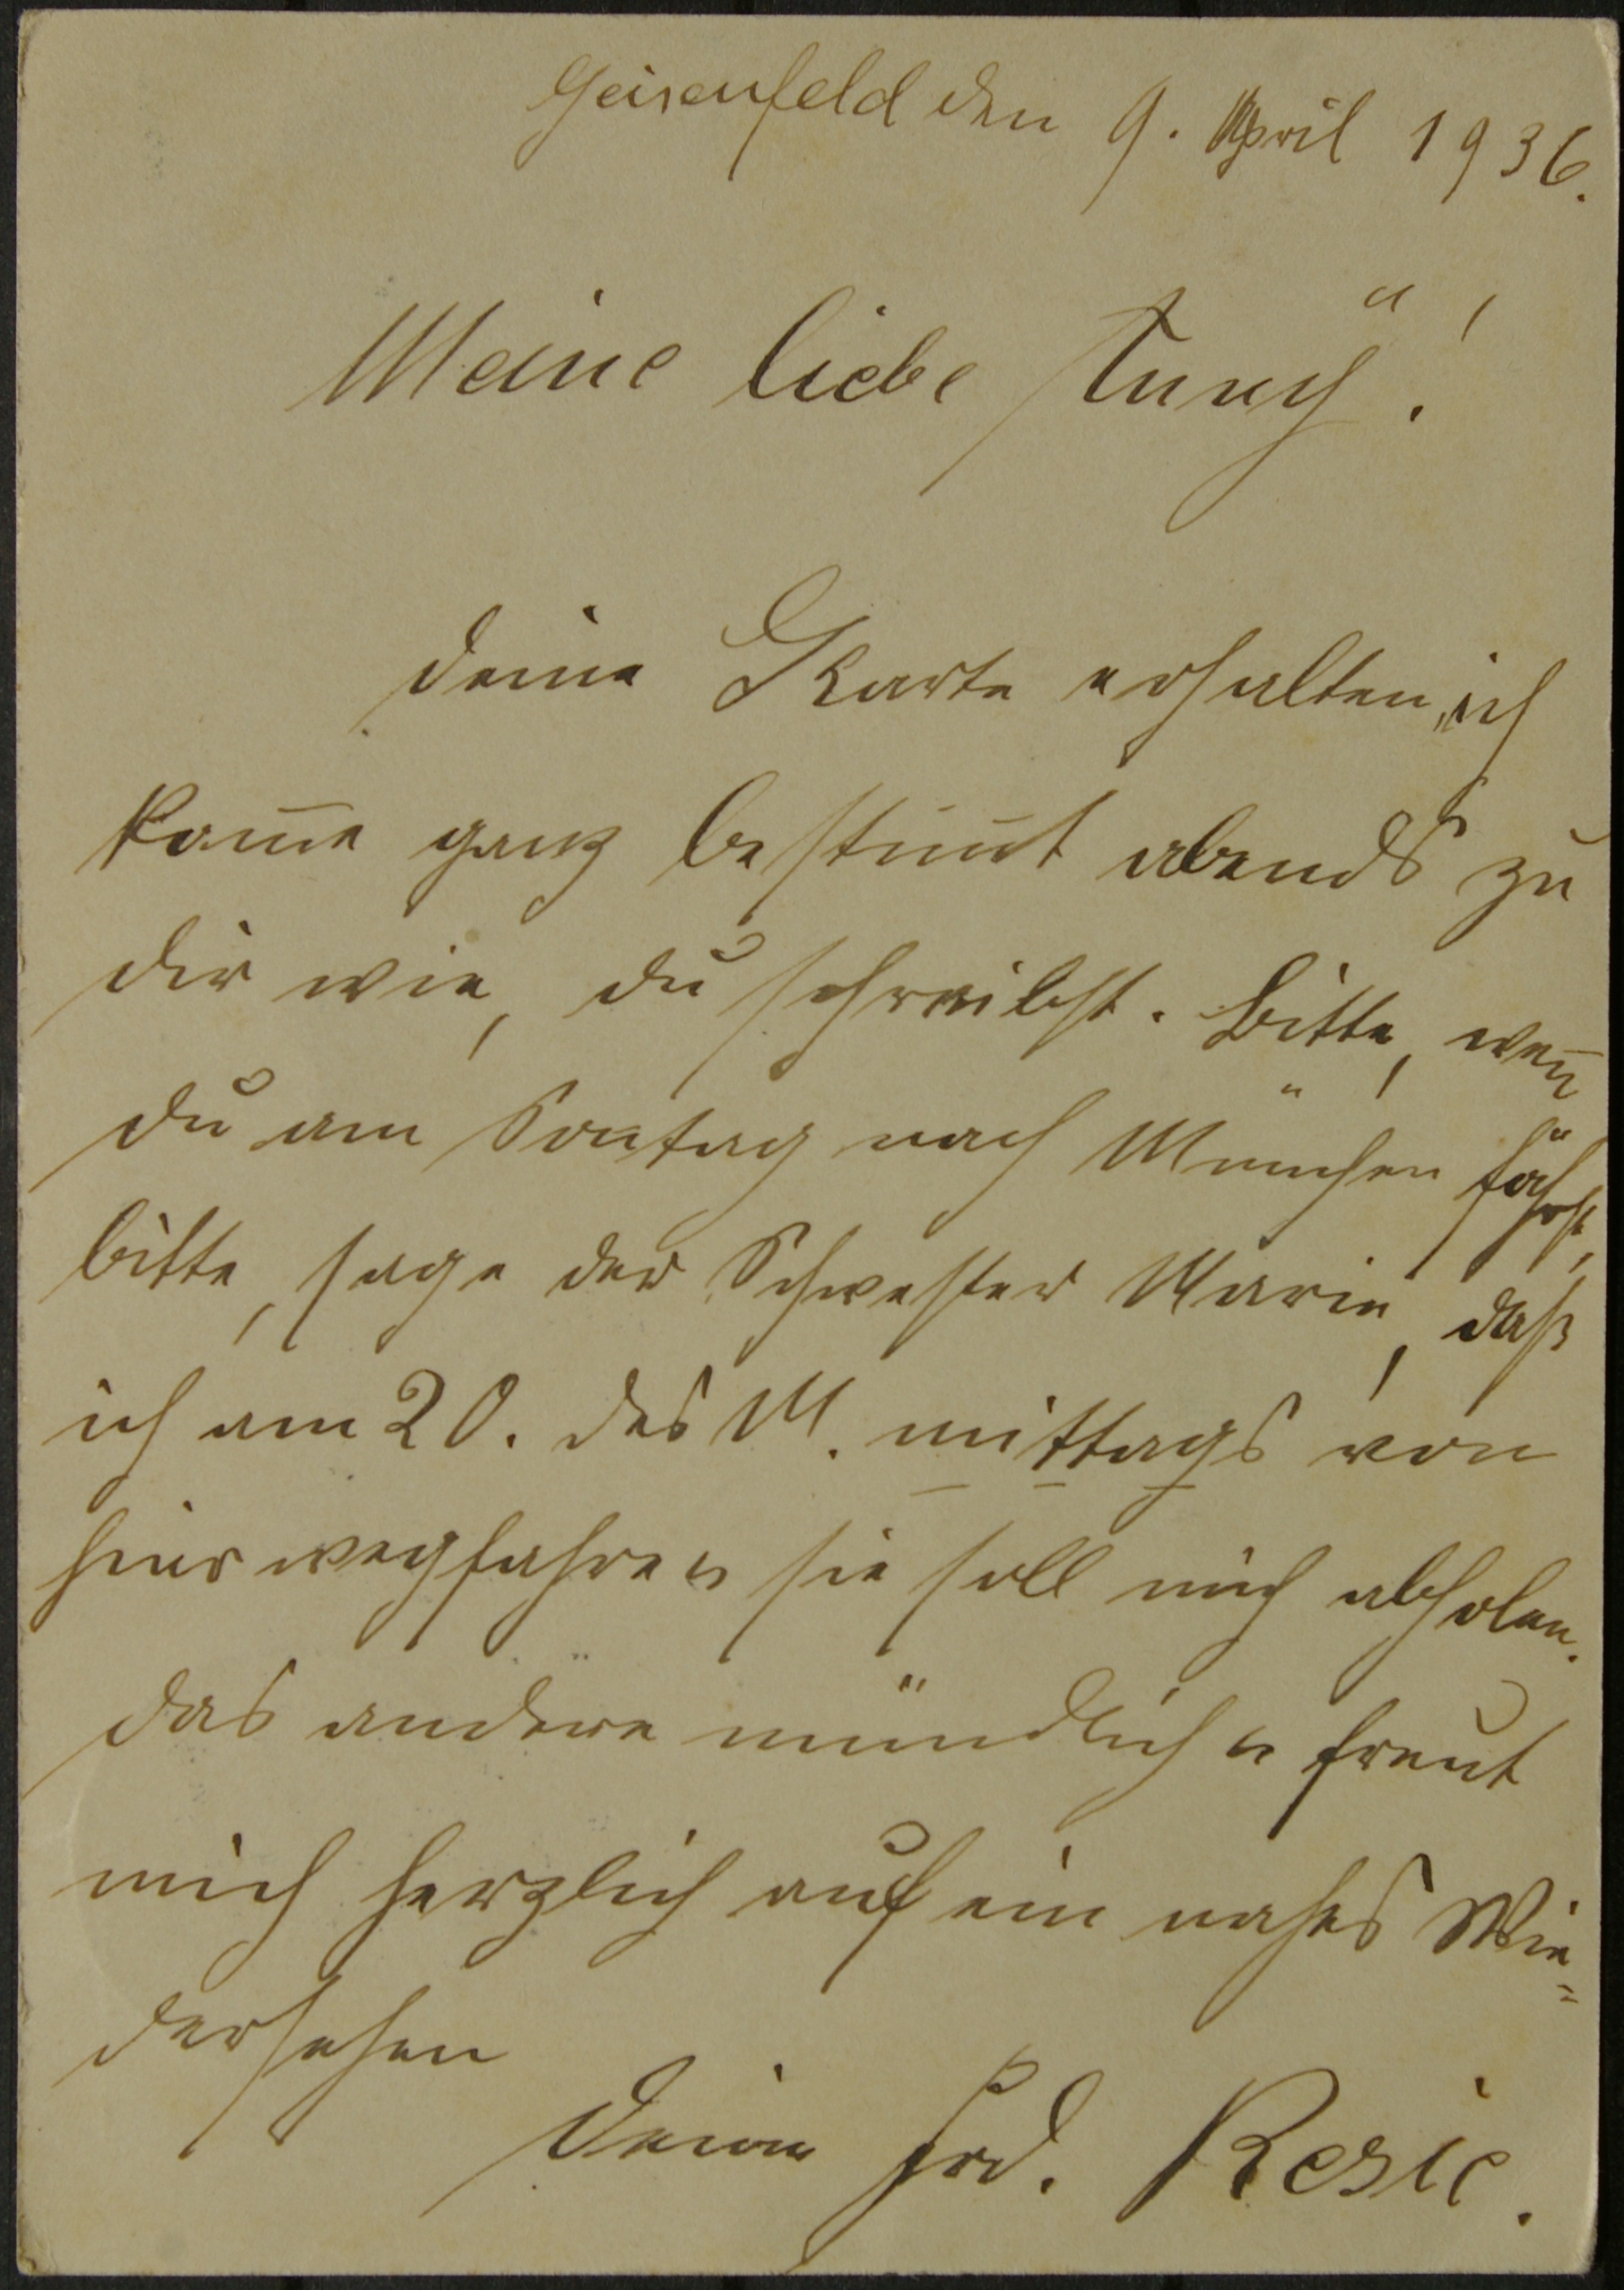 Geisenfeld den 9. April 1936.
Meine liebe Tuny!
Deine Karte erhalten, ich
kom̄e ganz bestim̄t abends zu
dir wie, du schreibst. Bitte, wen̄
du am Sontag nach München fährst,
bitte, sage der Schwester Marie, daß
ich am 20. des M. mittags von
hier wegfahre u sie soll mich abholen.
das andere mündlich u freut
mich herzlich auf ein nahes Wie=
dersehen
Deine Frd. Resie.